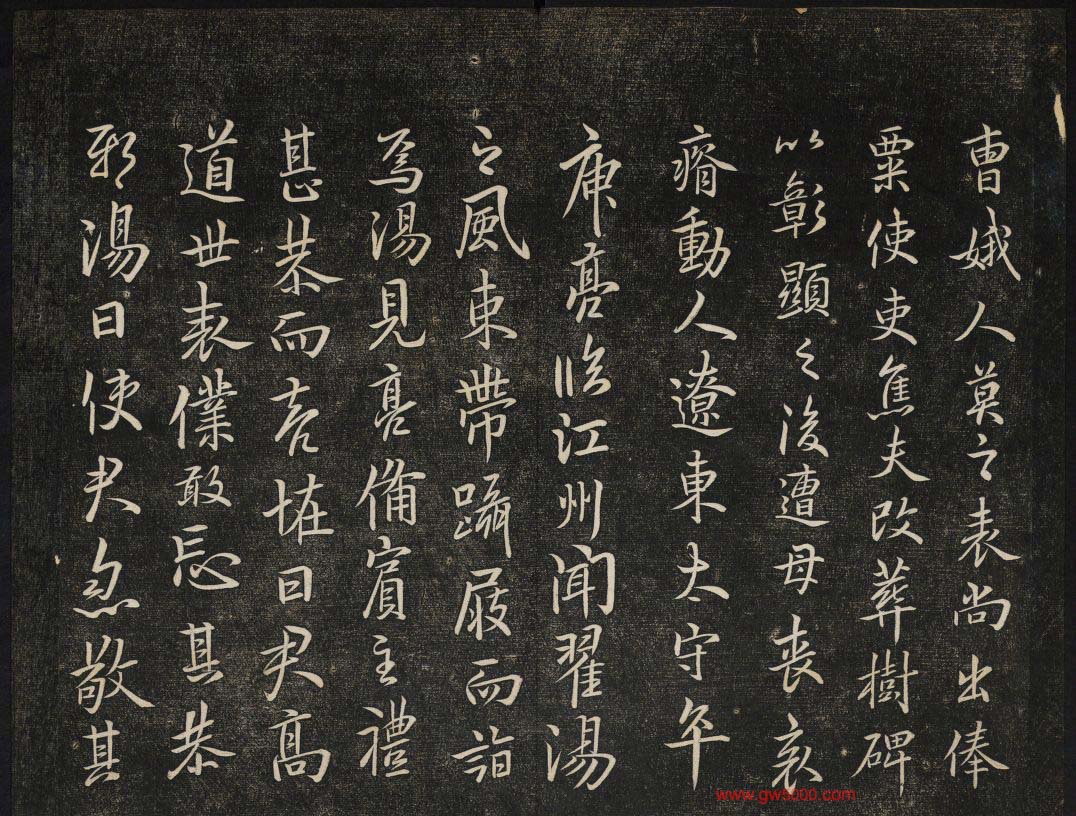 曹娥人莫之表尚出俸
粟使吏焦夫改葬樹碑
以彰顯之後遭母喪哀
瘠動人遼東太守卒
庾亮臨江州聞翟湯
之風束帶躡屐而詣
焉湯見亮備賓主禮
甚恭而恠曰君高
道世表僕敢忘其恭
邪湯曰使君敬其
www.gw5000.com